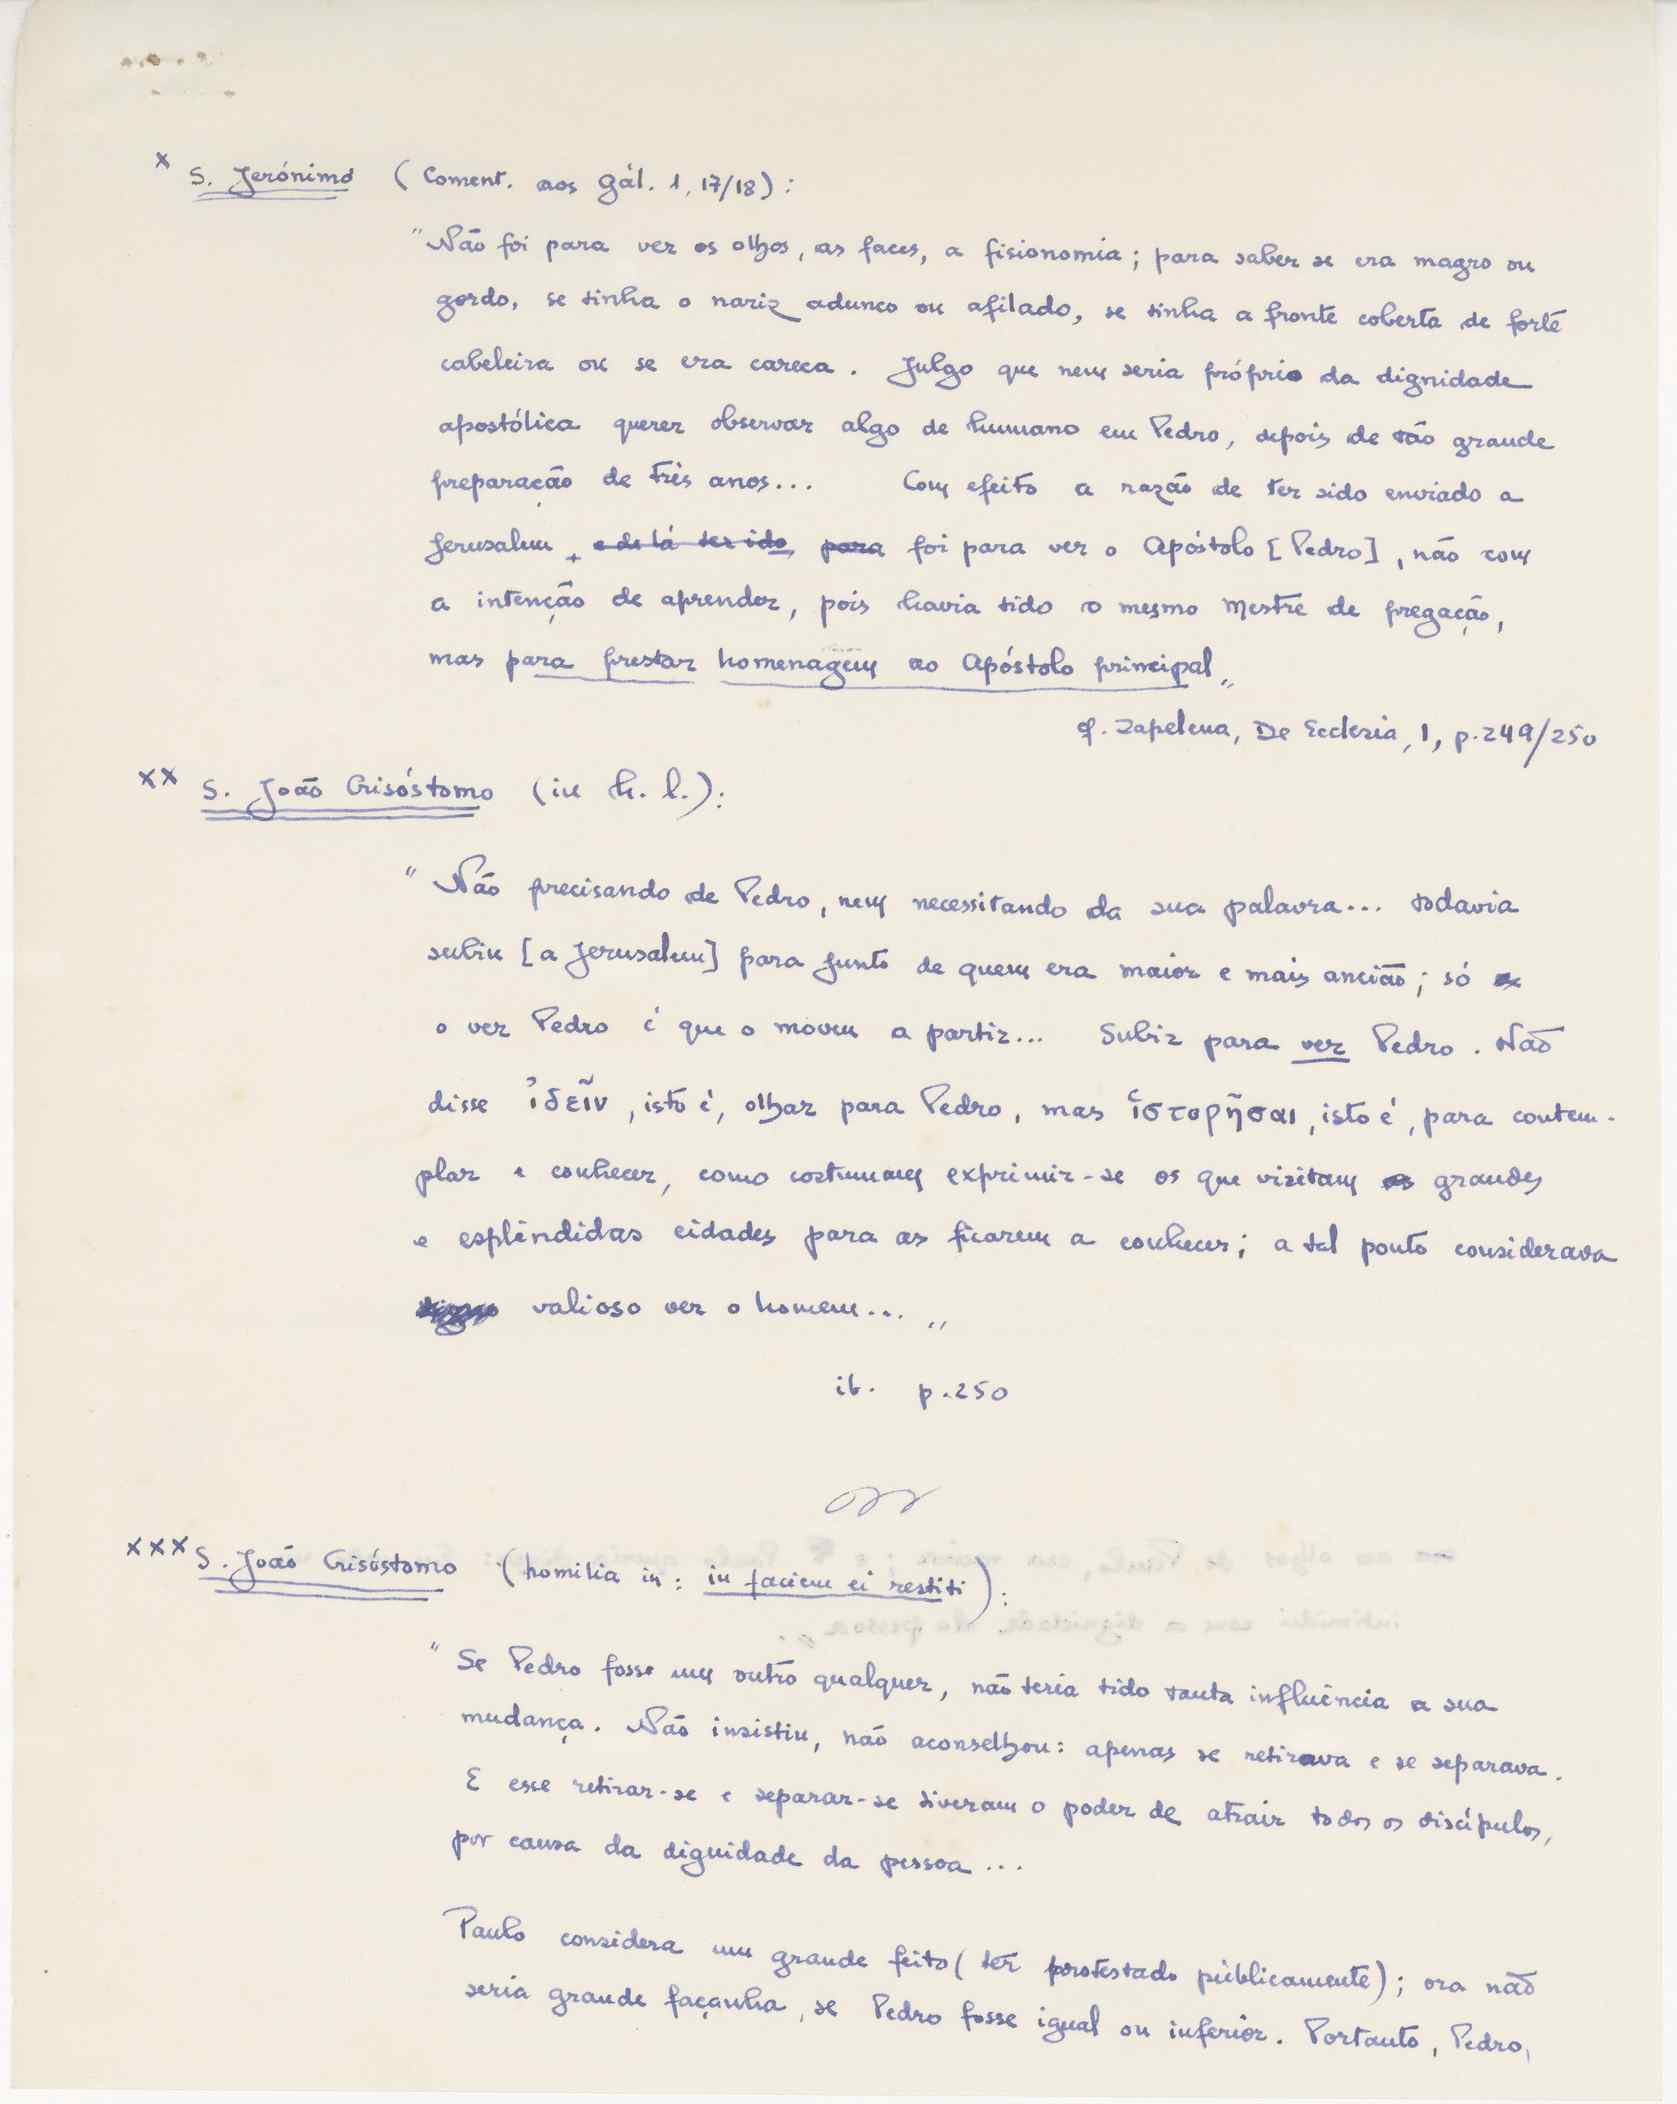 x S. Jerónimo (Coment. aos Gál. 1, 17/18):
"Não foi para ver os olhos, as faces, a fisionomia; para saber se era magro ou
gordo, se tinha o nariz adunco ou afilado, se tinha a fronte coberta de forte
cabeleira ou se era careca. Julgo que nem seria próprio da dignidade
apostólica querer observar algo de humano em Pedro, depois de tão grande
preparação de três anos... Com efeito a razão de ter sido enviado a
Jerusalem, e de lá ter ido para foi para ver o Apóstolo [Pedro], não com
a intenção de aprender, pois havia tido o mesmo Mestre de pregação,
mas para prestar homenagem ao Apóstolo principal"
cf. Zapelena, De Ecclesia, 1, p.249/250
xx S. João Crisóstomo (in h. l.):
"Não precisando de Pedro, nem necessitando da sua palavra... todavia
subiu [a Jerusalem] para junto de quem era maior e mais ancião; só
o ver Pedro é que o moveu a partir... Subir para ver Pedro. Não
disse ἰδεῖν, isto é, olhar para Pedro, mas ἱστορῆσαι, isto é, para contem-
plar e conhecer, como costumam exprimir-se os que visitam as grandes
e esplêndidas cidades para as ficarem a conhecer; a tal ponto considerava
valioso ver o homem..."
ib. p.250
xxx S. João Crisóstomo (homilia in: in faciem ei restiti):
"Se Pedro fosse um outro qualquer, não teria tido tanta influência a sua
mudança. Não insistiu, não aconselhou: apenas se retirava e se separava.
E esse retirar-se e separar-se tiveram o poder de atrair todos os discípulos,
por causa da dignidade da pessoa...
Paulo considera um grande feito (ter protestado públicamente); ora não
seria grande façanha, se Pedro fosse igual ou inferior. Portanto, Pedro,